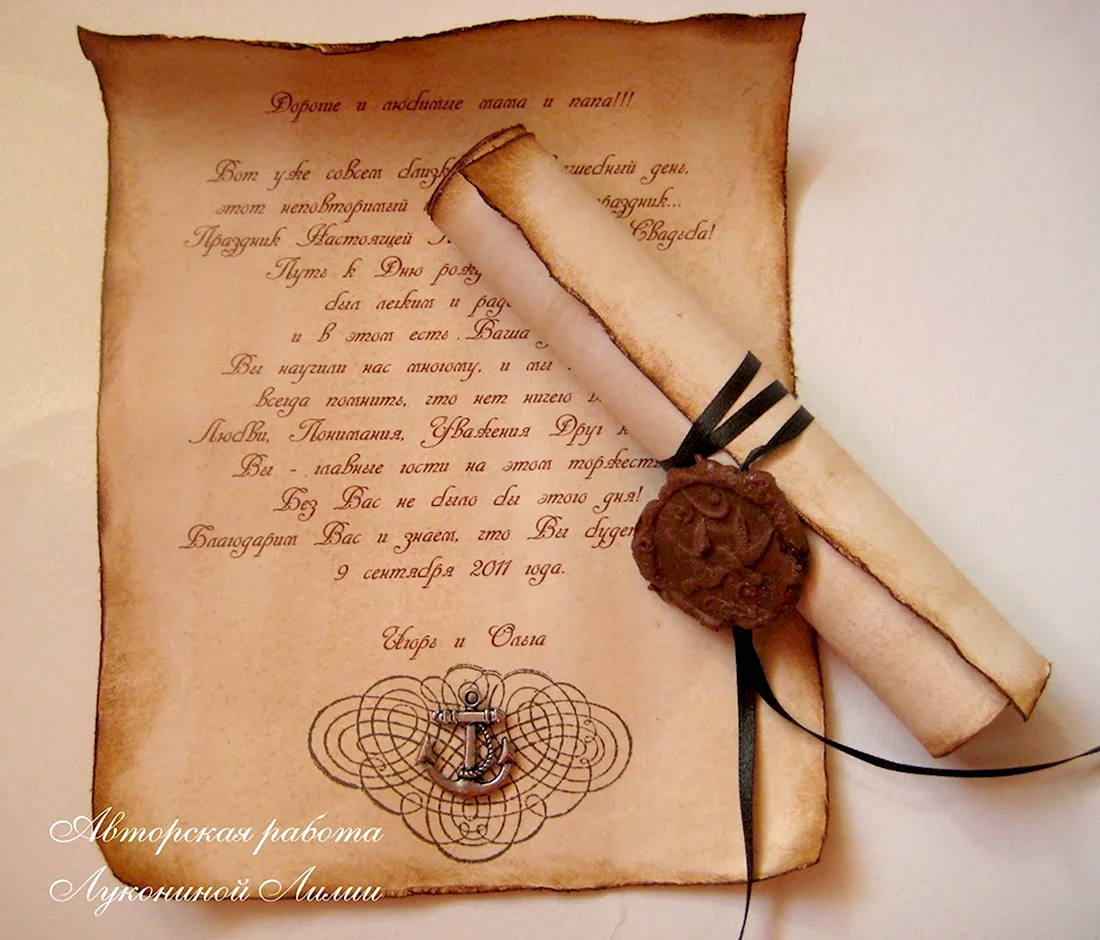 Дорогие и любимые мама и папа!!!
Вот уже совсем день,
этот неповторимый
Праздник Настоящей Свадьба!
Путь к Дню
был легким и
и в этом есть Ваша
Вы научили нас многому, и мы
всегда помнить, что нет ничего
Любви, Понимания, Уважения Друг
Вы - главные гости на этом
Без Вас не было бы этого дня!
Благодарим Вас и знаем, что Вы
9 сентября 2011 года.
Игорь и Ольга
Авторская работа
Лукониной Лилии